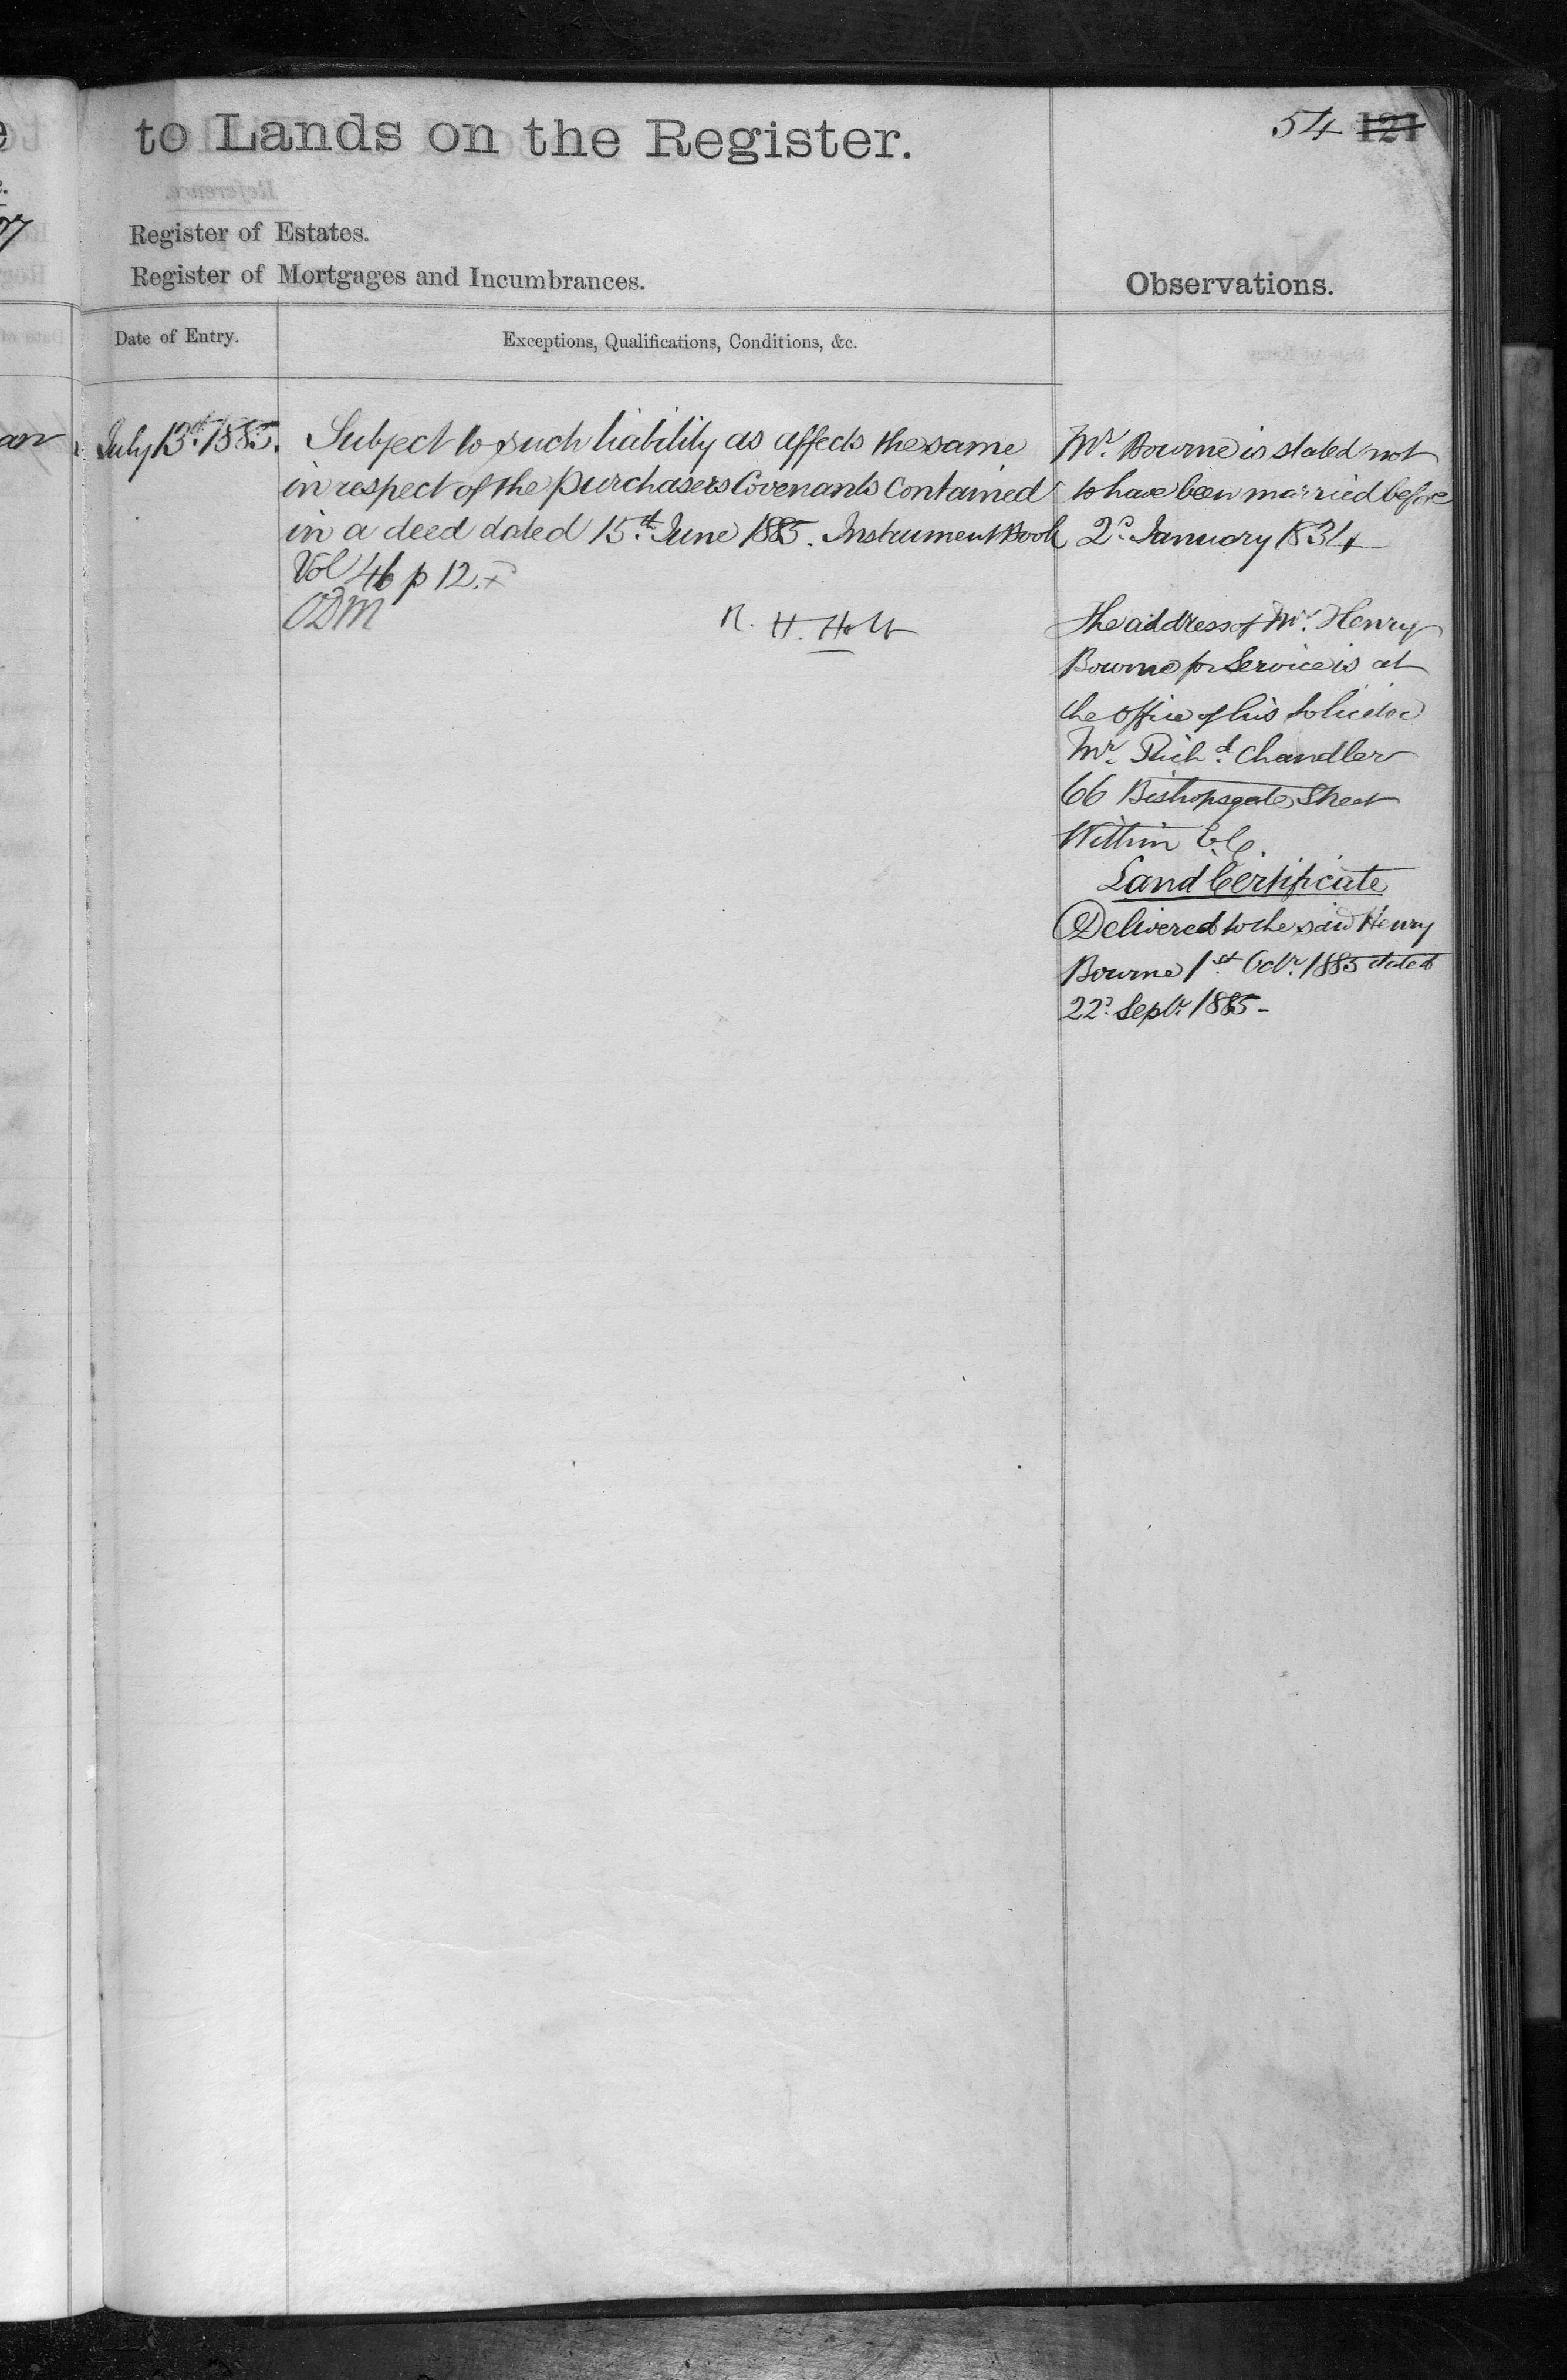 54 121
to Lands on the Register.
Register of Estates.
Register of Mortgages and Incumbrances.
Observations.
Date of Entry.
Exceptions, Qualifications, Conditions, &c.
July 13th 1885.
Subject to such liability as affects the same
in respect of the purchasers Covenants Contained
in a deed dated 15th June 1885. Instrument Book
Vol 46 p 12.
ODM
R. H. Holt
Mr. Bourne is stated not
to have been married before
2d. January 1834
The address of Mr. Henry
Bourne for Service is at
the office of his Solicitor
Mr. Richd. Chandler
66 Bishopsgate Street
Within E.C.
Land Certificate
Delivered to the said Henry
Bourne 1st. Octr. 1885 dated
22d. Septr. 1885 -